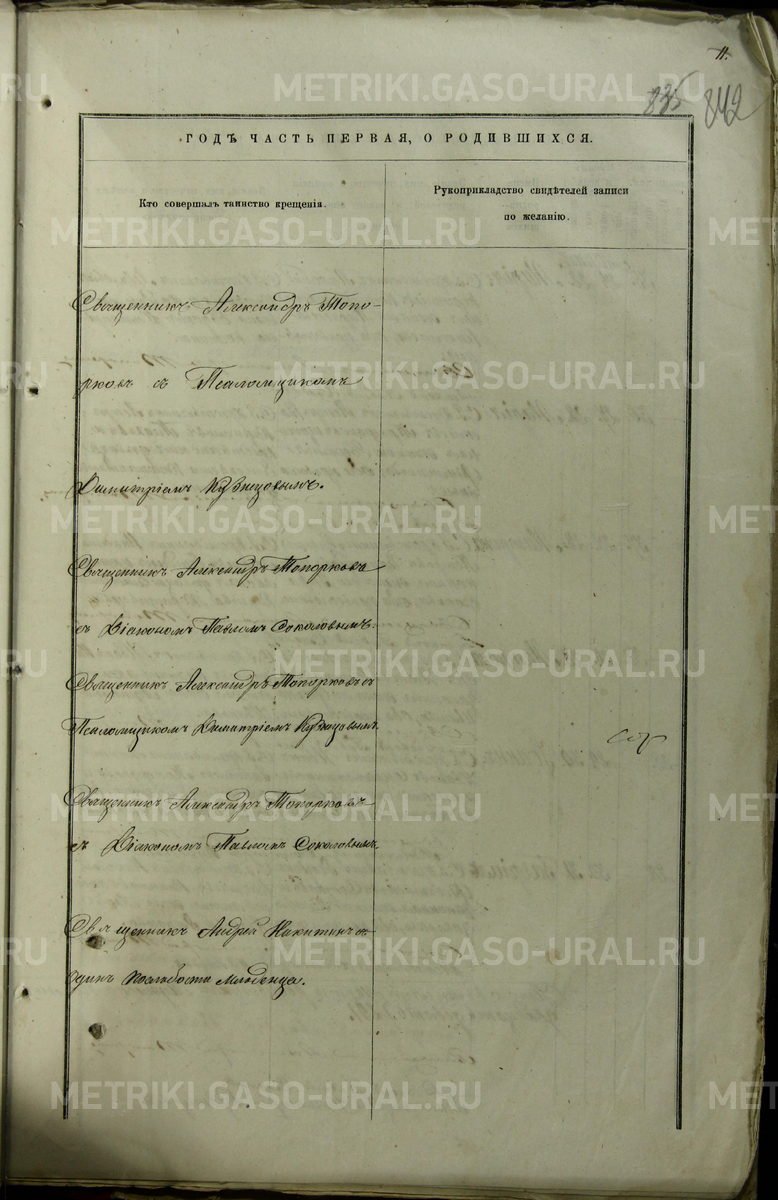 11.
835
842
ГОДѢ ЧАСТЬ ПЕРВАЯ, О РОДИВШИХСЯ.
Кто совершалъ таинство крещенія.
Рукоприкладство свидѣтелей записи
по желанію.
Священникъ Александръ Топо-
рковъ съ Псаломщикомъ
Димитріемъ Кузнецовымъ.
Священникъ Александръ Топорковъ
съ Діакономъ Павломъ Соколовымъ.
Священникъ Александръ Топорковъ съ
Псаломщикомъ Димитріемъ Кузнецовымъ.
Священникъ Александръ Топорковъ
съ Діакономъ Павломъ Соколовымъ.
Священникъ Андрей Никитинъ
одинъ по слабости младенца.
METRIKI.GASO-URAL.RU